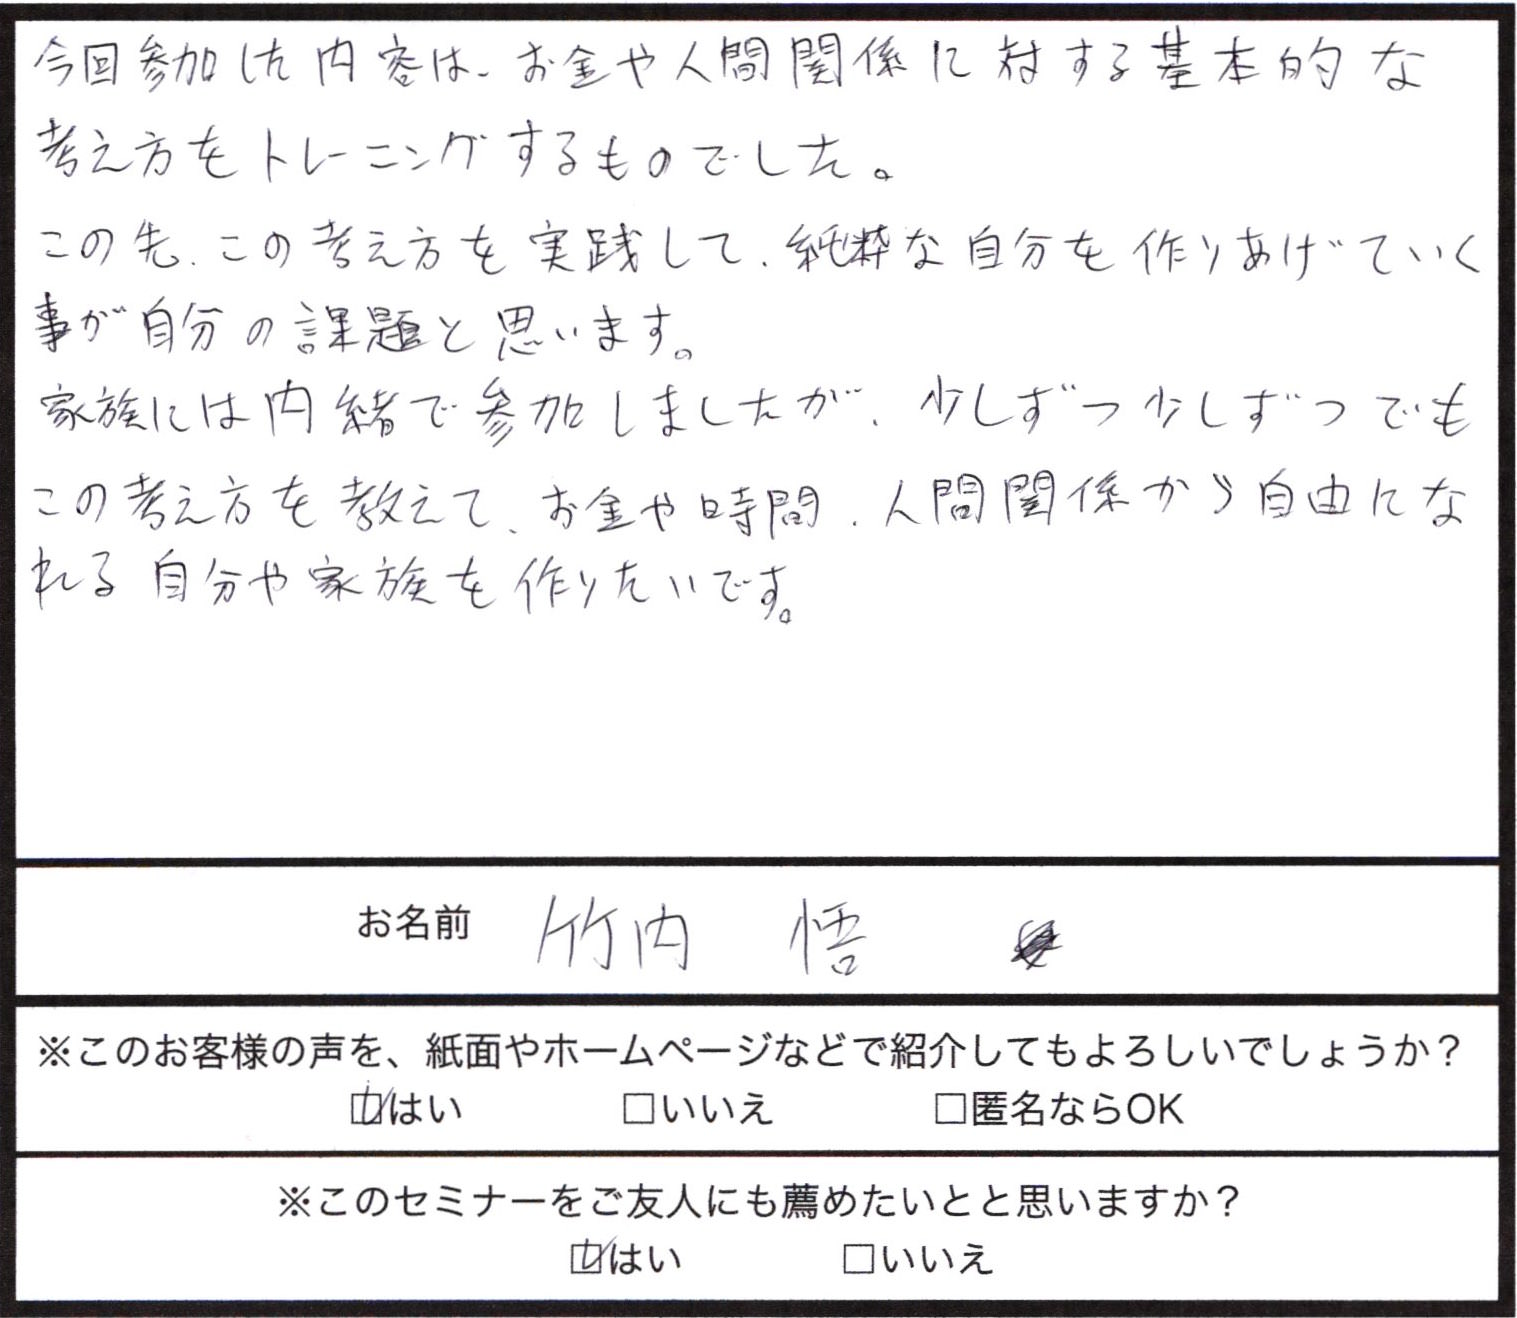 今回参加した内容は、お金や人間関係に対する基本的な
考え方をトレーニングするものでした。
この先、この考え方を実践して、純粋な自分を作りあげていく
事が自分の課題と思います。
家族には内緒で参加しましたが、少しずつ少しずつでも
この考え方を教えて、お金や時間、人間関係から自由にな
れる自分や家族を作りたいです。
お名前 竹内 悟
※このお客様の声を、紙面やホームページなどで紹介してもよろしいでしょうか？
☑はい □いいえ □匿名ならOK
※このセミナーをご友人にも薦めたいとと思いますか？
☑はい □いいえ